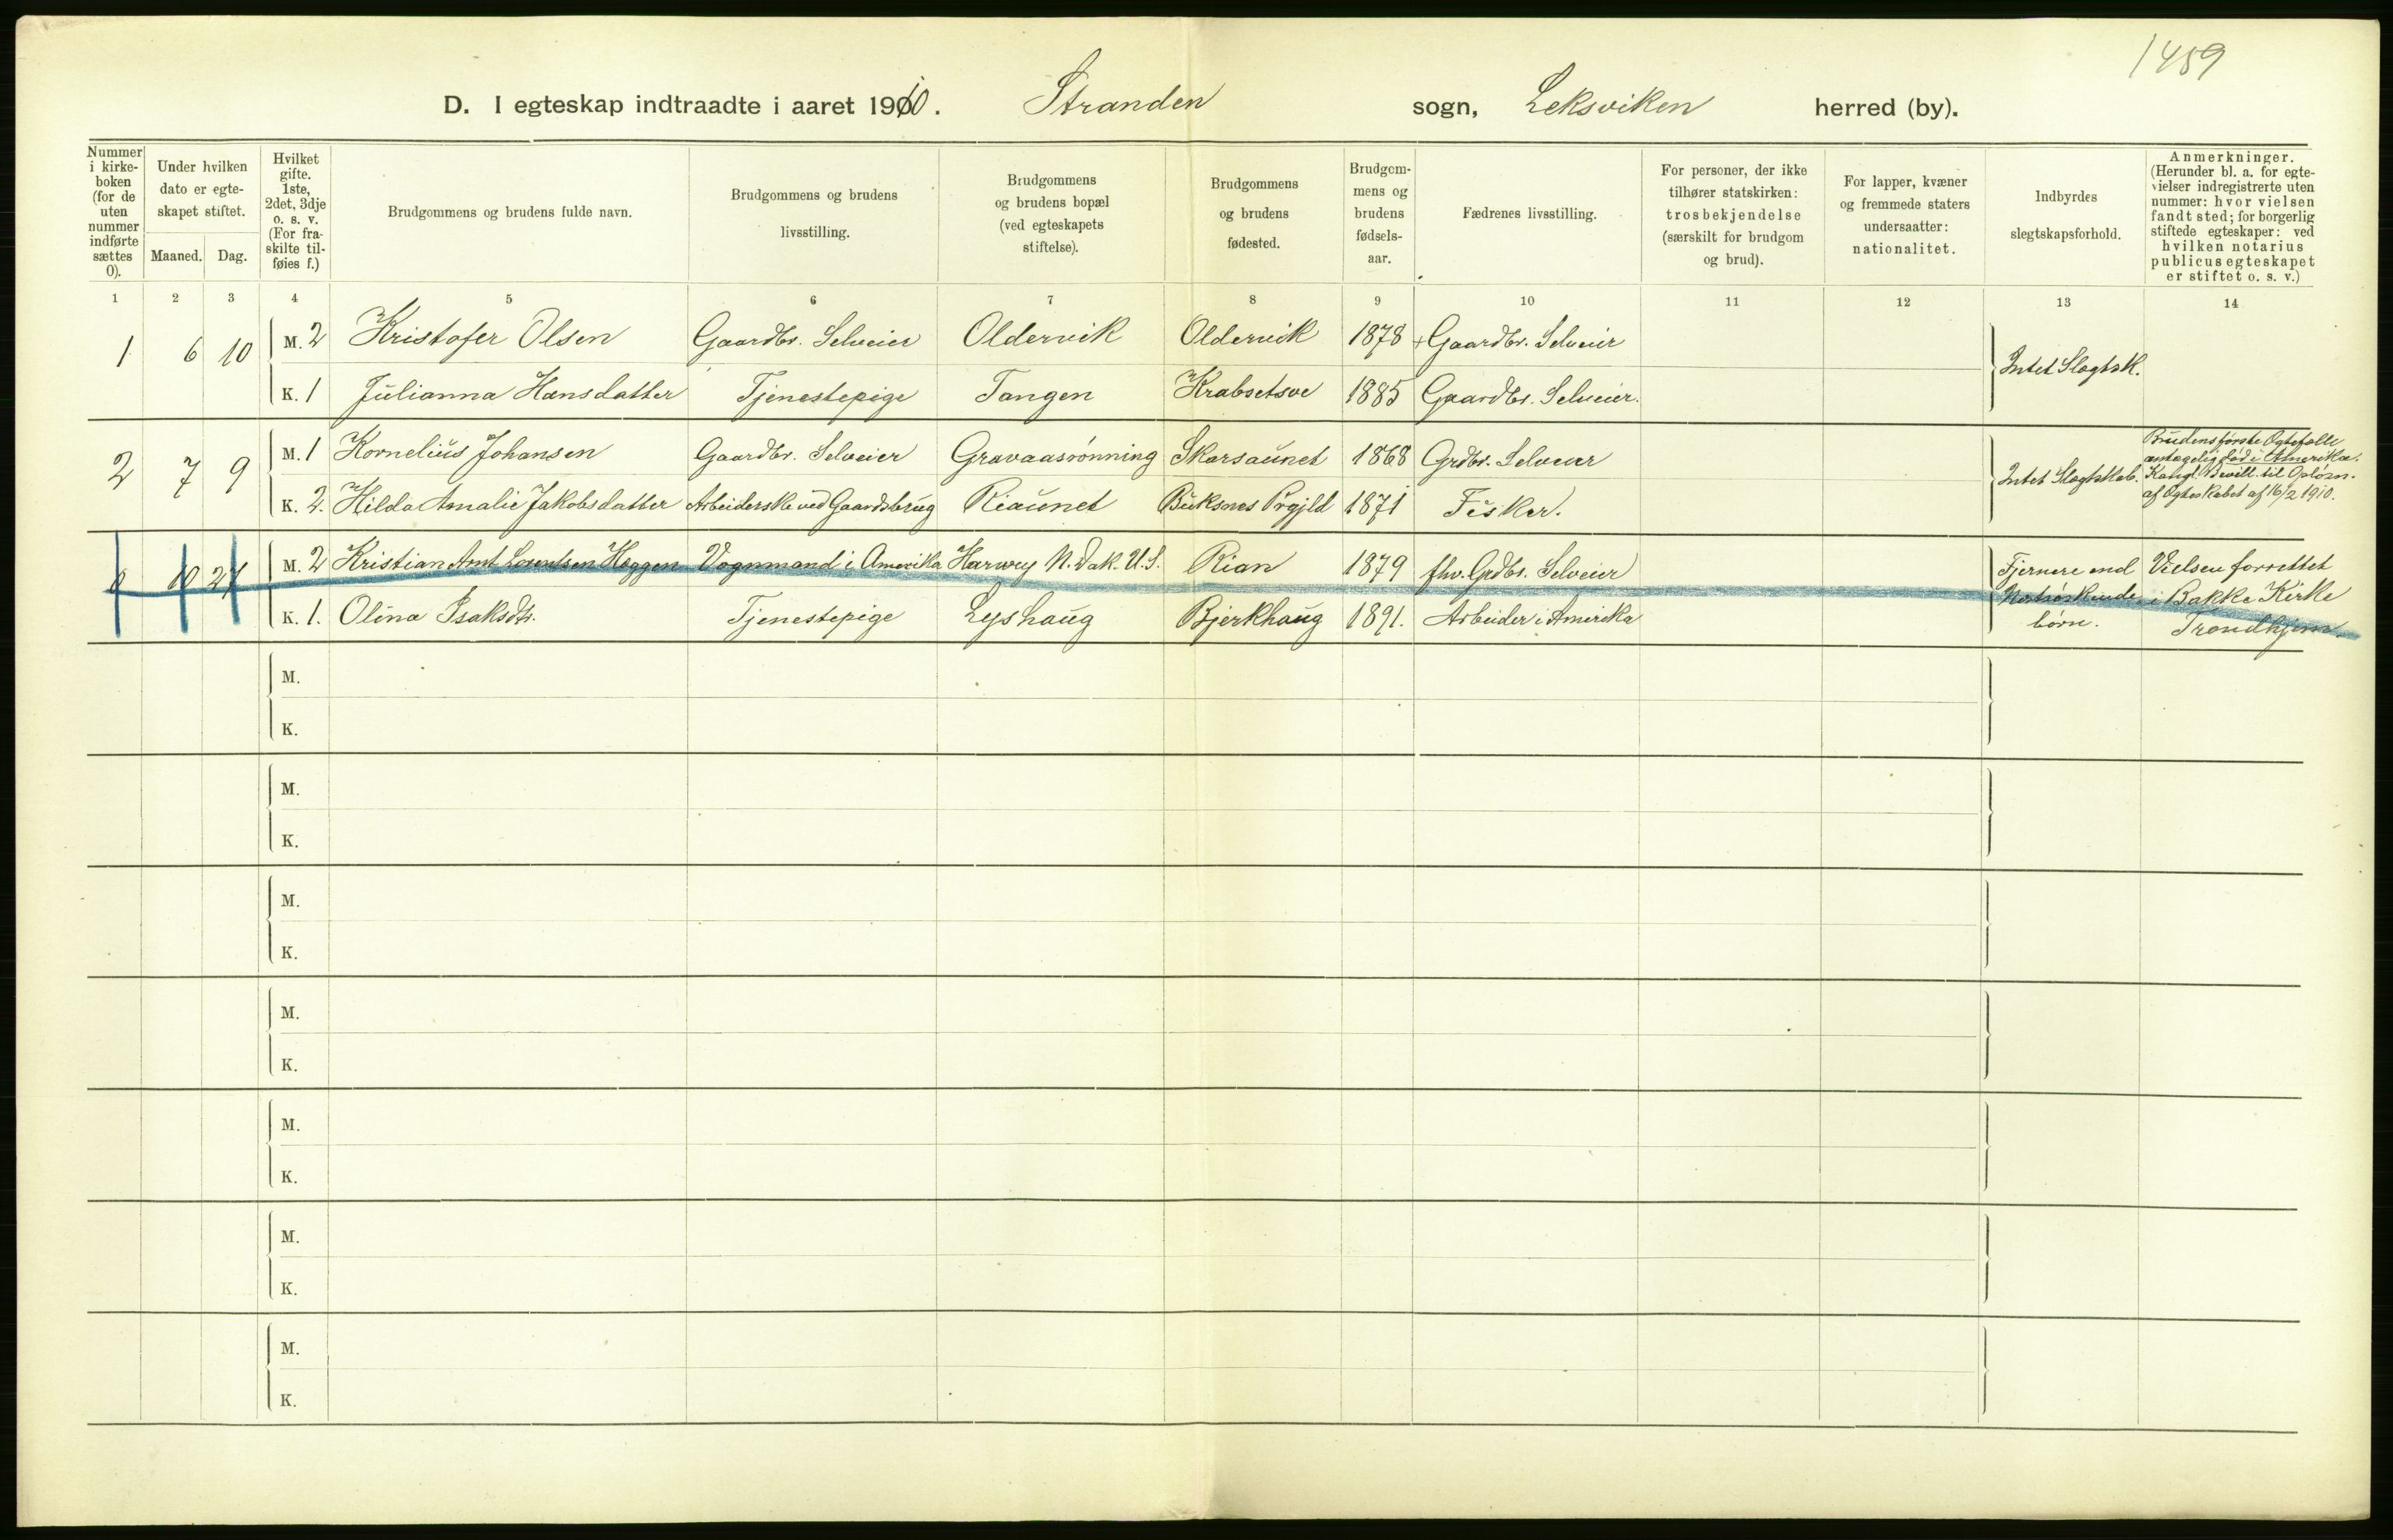 1459
D. I egteskap indtraadte i aaret 1910. Stranden sogn, Leksviken herred (by).
Nummer i kirke-boken (for de uten nummer indførte sættes 0).
Under hvilken dato er egte-skapet stiftet.
Maaned. Dag.
Hvilket gifte. 1ste, 2det, 3dje o. s. v. (For fra-skilte til-føies f.)
Brudgommens og brudens fulde navn.
Brudgommens og brudens livsstilling.
Brudgommens og brudens bopæl (ved egteskapets stiftelse).
Brudgommens og brudens fødested.
Brudgom-mens og brudens fødsels-aar.
Fædrenes livsstilling.
For personer, der ikke tilhører statskirken: trosbekjendelse (særskilt for brudgom og brud).
For lapper, kvæner og fremmede staters undersaatter: nationalitet.
Indbyrdes slegtskapsforhold.
Anmerkninger. (Herunder bl. a. for egte-vielser indregistrerte uten nummer: hvor vielsen fandt sted; for borgerlig stiftede egteskaper: ved hvilken notarius publicus egteskapet er stiftet o. s. v.)
1 2 3 4 5 6 7 8 9 10 11 12 13 14
1 6 10 M. 2 Kristofer Olsen Gaardbr. Selveier Oldervik Oldervik 1878 + Gaardbr. Selveier Intet Slegtsk.
K. 1 Julianna Hansdatter Tjenestepige Tangen Krabsetsve 1885 Gaardbr. Selveier.
2 7 9 M. 1 Kornelius Johansen Gaardbr. Selveier Gravaasrønning Skarsaunet 1868 Grdbr. Selveier Intet Slegtskab.
K. 2. Hilda Amalie Jakobsdatter Arbeiderske ved Gaardsbrug Riaunet Buksnes Prgjld 1871 Fisker.
Brudens første Ægtefælle
antagelig død i Amerika.
Kongl. Bevill. til Opløsn.
af Ægteskabet af 16/2 1910.
0 10 27 M. 2 Kristian Arnt Lorentsen Hæggen Vognmand i Amerika Harwey N. Dak. U.S. Rian 1879 fhv. Grdbr. Selveier
K. 1. Olina Isaksdtr. Tjenestepige Lyshaug Bjerkhaug 1891. Arbeider i Amerika
Fjernere end
Næstsøskende
børn.
Vielsen forrettet
i Bakke Kirke
Trondhjem.
M.
K.
M.
K.
M.
K.
M.
K.
M.
K.
M.
K.
M.
K.